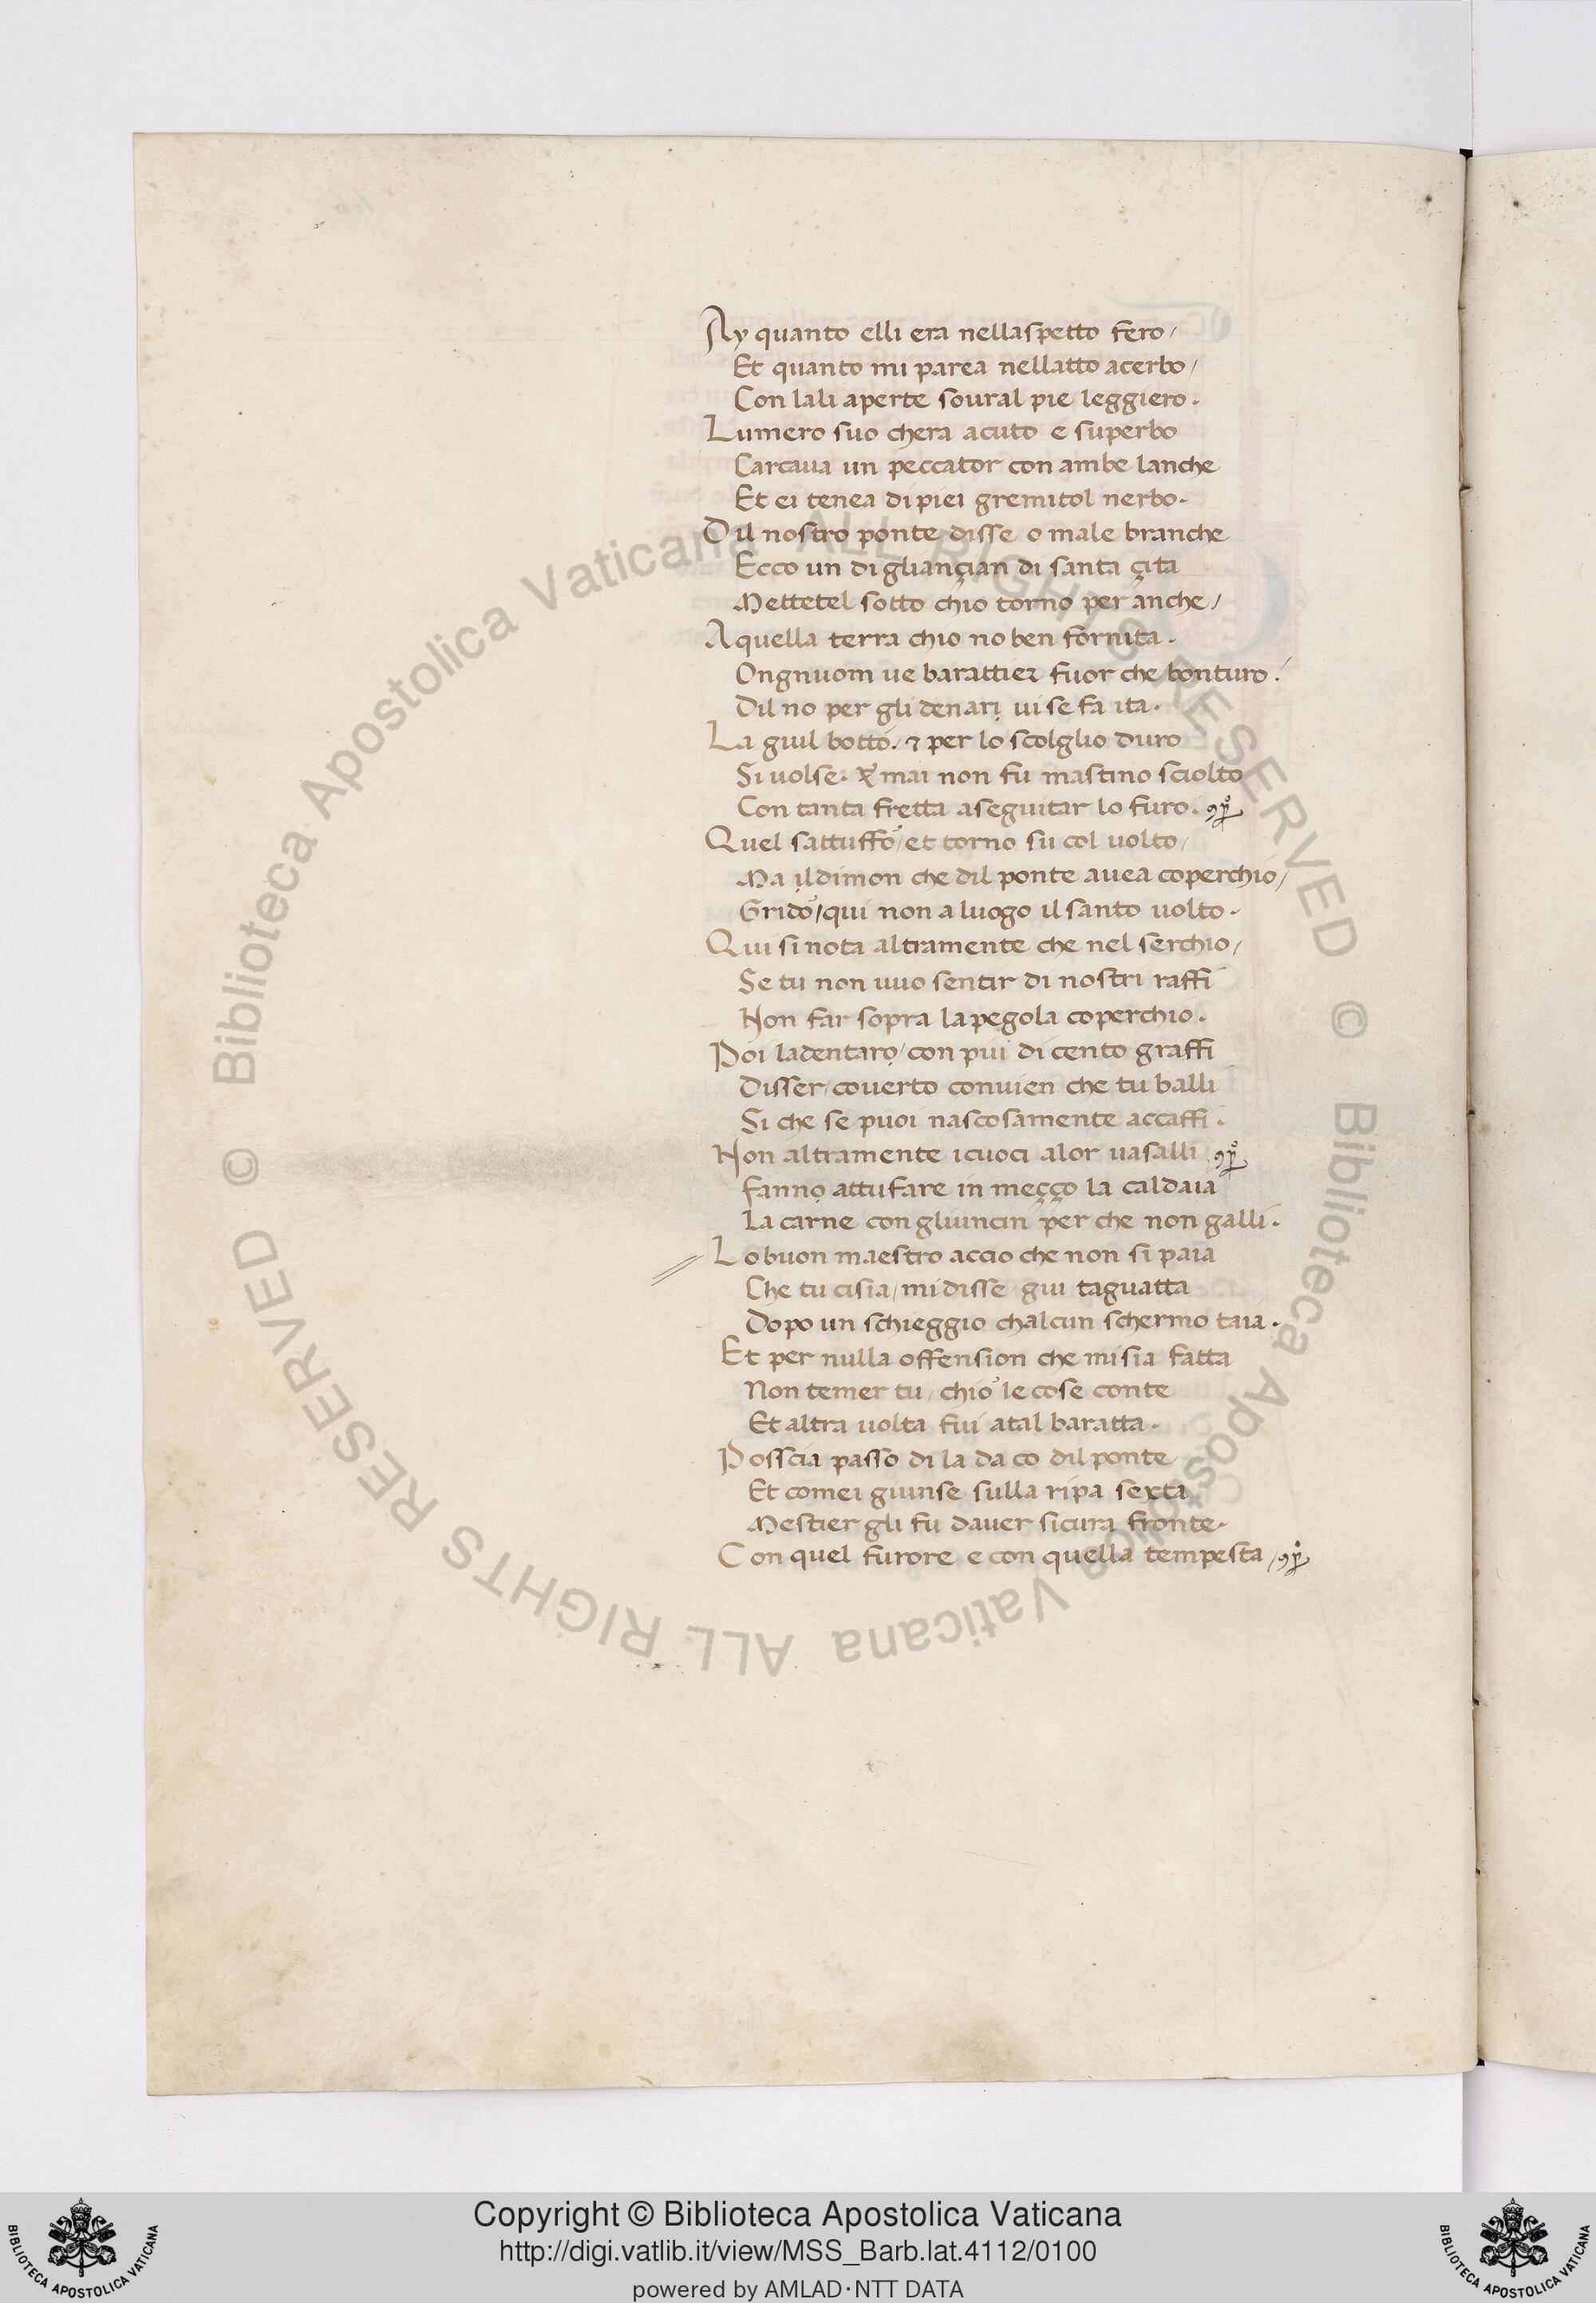 Ay quanto elli era nellaspetto fero/
Et quanto mi parea nellatto acerbo/
Con lali aperte soural pie leggiero.
Lumero suo chera acuto e superbo
Carcaua un peccator con ambe lanche
Et ei tenea di piei gremitol nerbo.
Dil nostro ponte disse o male branche
Ecco un di gliançian di santa çita
Mettetel sotto chio torno per anche/
A quella terra chio no ben fornita.
Ongnuom ue barattier fuor che bonturo.
Dil no per gli denari ui se fa ita.
La giul botto. ⁊ per lo scolglio duro
Si uolse. & mai non fu mastino sciolto
Con tanta fretta aseguitar lo furo.
Quel sattuffo/et torno su col uolto/
Ma ildimon che dil ponte auea coperchio/
Grido/qui non a luogo il santo uolto.
Qui si nota altramente che nel serchio/
Se tu non uuo sentir di nostri raffi
Non far sopra la pegola coperchio.
Poi ladentaro/con piui di cento graffi
Disser/couerto conuien che tu balli
Si che se puoi nascosamente accaffi.
Non altramente icuoci alor uasalli
fanno attufare in meçço la caldaia
La carne con gliuncin per che non galli.
Lo buon maestro accio che non si paia
Che tu cisia/mi disse giu taguatta
Dopo un schieggio chalcun schermo taia.
Et per nulla offension che mi sia fatta
Non temer tu/chio le cose conte
Et altra uolta fui atal baratta.
Posscia passo di la da co dil ponte
Et comei giunse sulla ripa sexta
Mestier gli fu dauer sicura fronte.
Con quel furore e con quella tempesta/
© Biblioteca Apostolica Vaticana ALL RIGHTS RESERVED © Biblioteca Apostolica Vaticana ALL RIGHTS RESERVED
Copyright © Biblioteca Apostolica Vaticana
http://digi.vatlib.it/view/MSS_Barb.lat.4112/0100
powered by AMLAD·NTT DATA
BIBLIOTECA APOSTOLICA VATICANA
BIBLIOTECA APOSTOLICA VATICANA